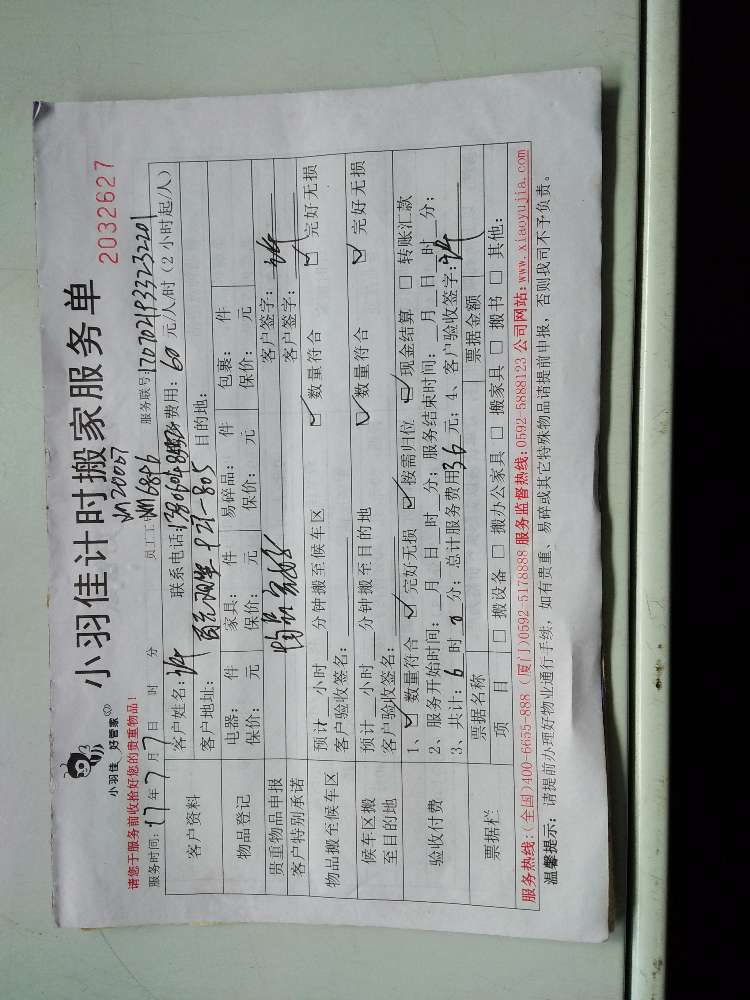 小羽佳计时搬家服务单
小羽佳 好管家
2032627
请您于服务前收拾好您的贵重物品！
NA20007
服务时间：17年7月7日 时 分 员工工 NM6846 服务联号：1707021933232201
客户资料
客户姓名： 联系电话： 费用：60元/人/时（2小时起/人）
客户地址： -805 目的地：
物品登记
电器： 件 家具： 件 易碎品： 件 包裹： 件
保价： 元 保价： 元 保价： 元 保价： 元
贵重物品申报 客户签字：
客户特别承诺 客户签字：
物品搬至候车区
预计 小时 分钟搬至候车区 数量符合 完好无损
客户验收签名：
候车区搬至目的地
预计 小时 分钟搬至目的地 数量符合 完好无损
客户验收签名：
验收付费
1、 数量符合 完好无损 按需归位 现金结算 转账汇款
2、服务开始时间： 月 日 时 分；服务结束时间： 月 日 时 分；
3、共计：6时0分；总计服务费用 元；4、客户验收签字：
票据栏
票据名称 票据金额
项 目 搬设备 搬办公家具 搬家具 搬书 其他：
服务热线：（全国）400-6655-888（厦门）0592-5178888 服务监督热线：0592-5888123 公司网站：www.xiaoyujia.com
温馨提示：请提前办理好物业通行手续，如有贵重、易碎或其它特殊物品请提前申报，否则我司不予负责。